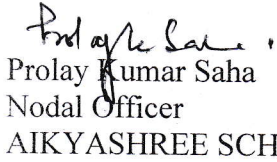 Prolay Kr Saha.
Prolay Kumar Saha
Nodal Officer
AIKYASHREE SCH